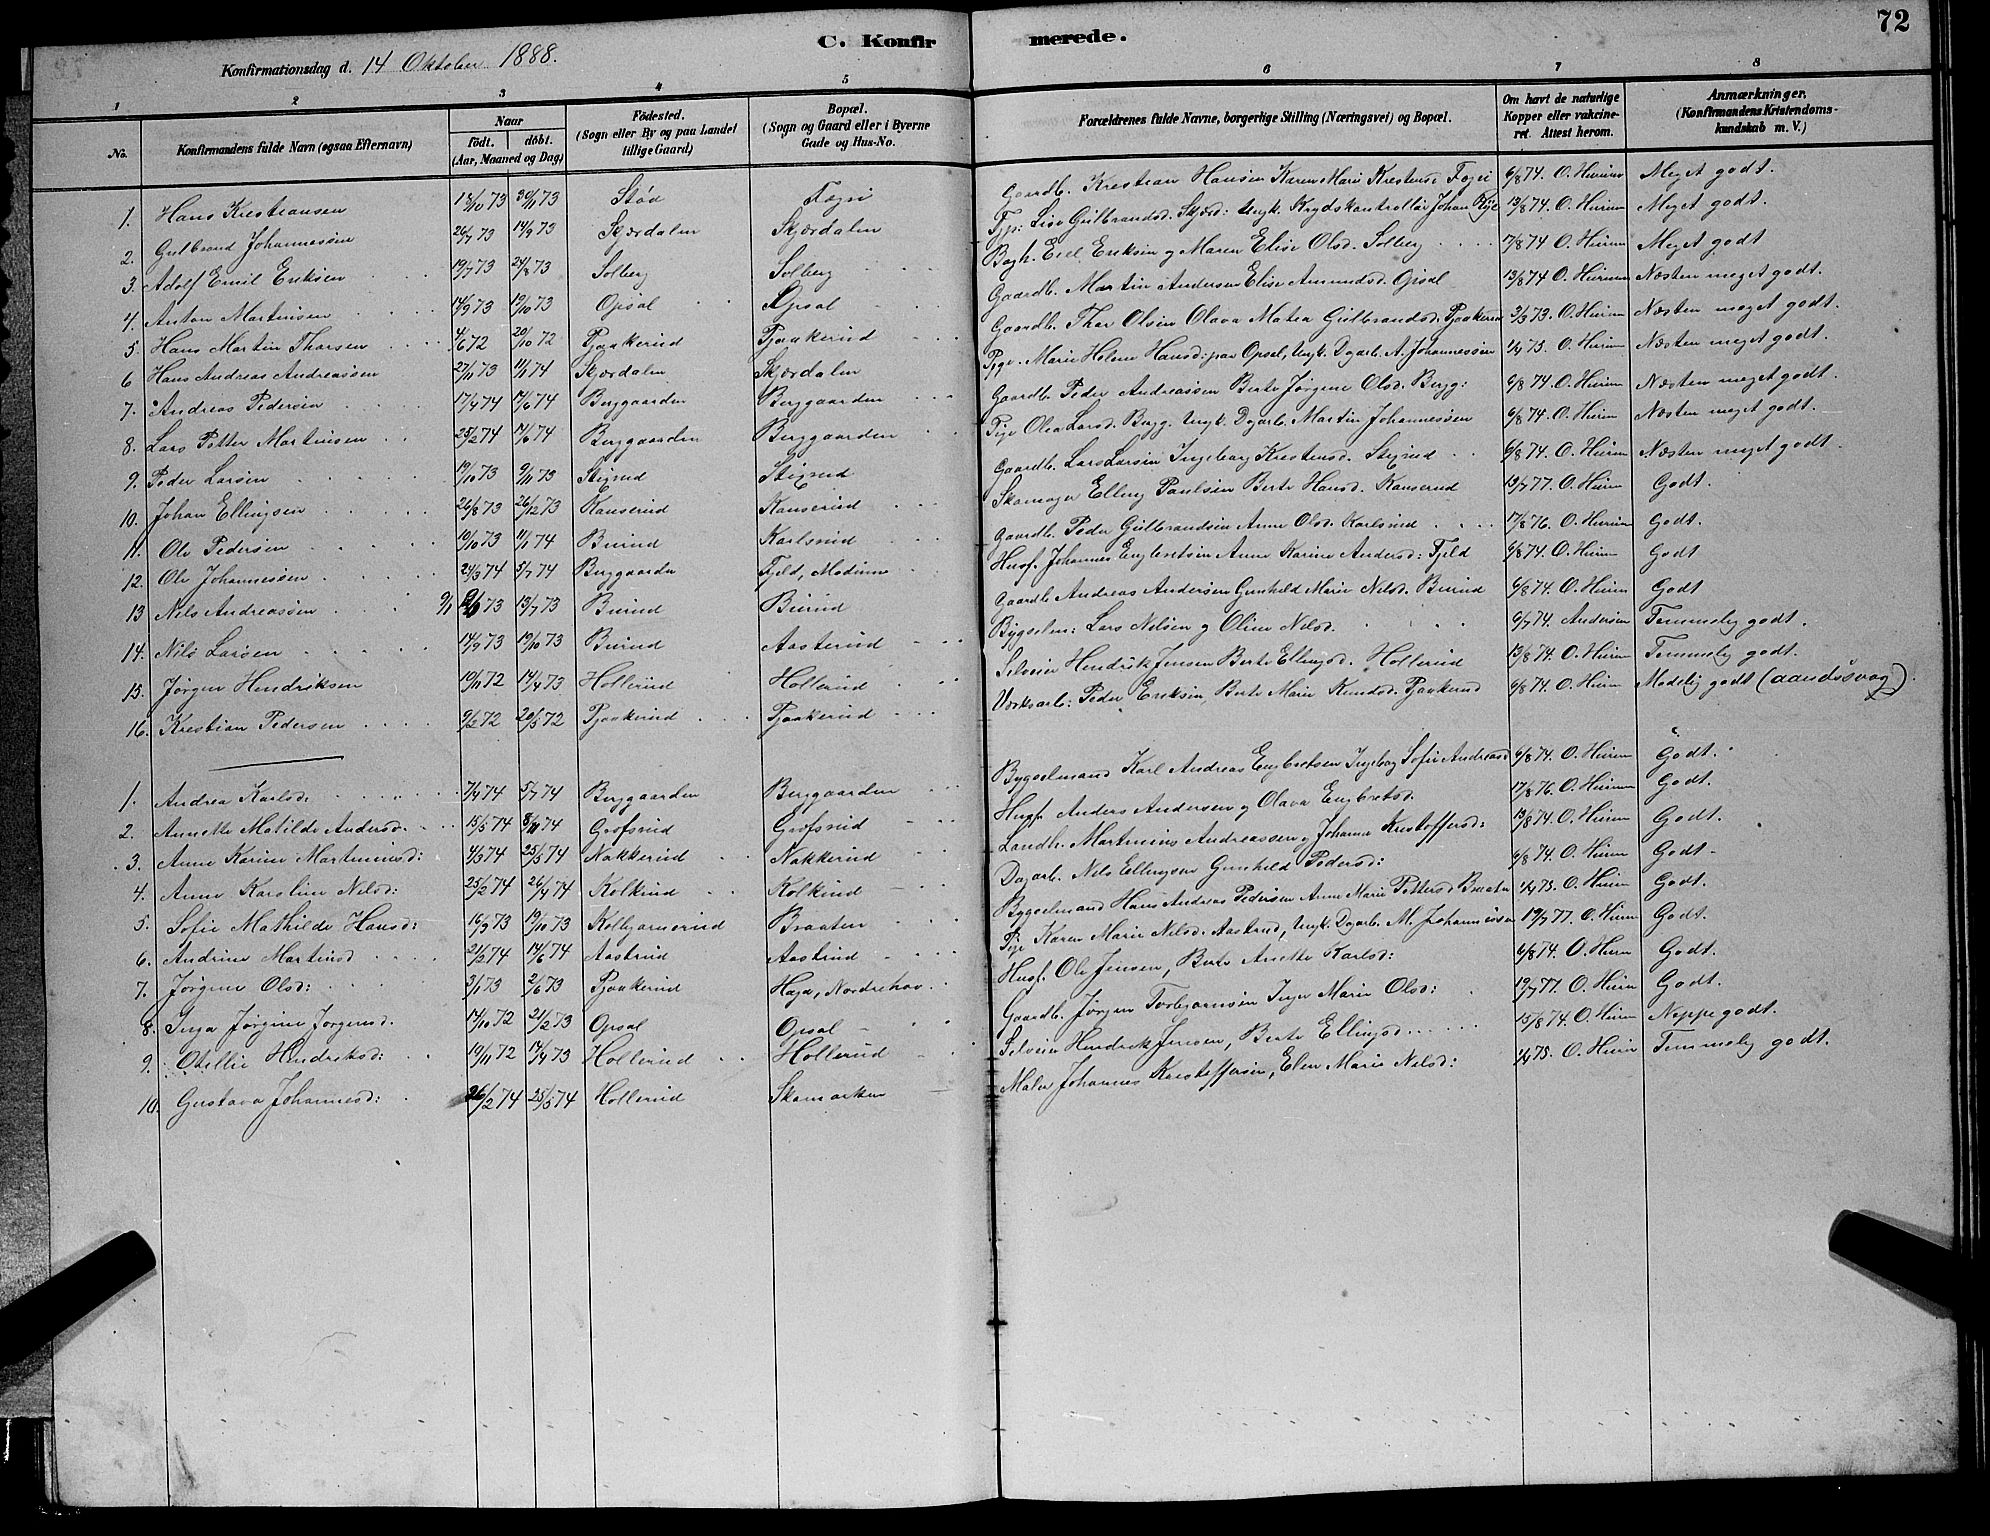 72
C. Konfirmerede.
Konfirmationsdag d. 14 Oktober 1888.
1 2 3 4 5 6 7 8
No. Konfirmandens fulde Navn (ogsaa Efternavn) Naar födt. döbt. (Aar, Maaned og Dag) Födested. (Sogn eller By og paa Landet tillige Gaard) Bopæl. (Sogn og Gaard eller i Byerne Gade og Hus-No. Forældrenes fulde Navne, borgerlige Stilling (Næringsvei) og Bopæl. Om havt de naturlige Kopper eller vakcineret. Attest herom. Anmærkninger. (Konfirmandens Kristendomskundskab m. V.)
1. Hans Krestiansen 13/10 73 30/11 73 Stød Fægri Gaardb. Krestian Hansen Karen Marie Krestensd. Fægri 6/8 74. O. Hurum Meget godt.
2. Gulbrand Johannessen 26/7 73 14/9 73 Skjærdalen Skjærdalen Lise Gulbrandsd. Skjærd: Ungk. Johan 13/8 74. O. Hurum Meget godt.
3. Adolf Emil Eriksen 19/7 73 24/8 73 Solberg Solberg Eriksen og Maren Elise Olsd. Solberg 17/8 74 O. Hurum Meget godt
4. Anton Martinsen 14/9 73 19/10 73 Opsal Opsal Gaardb. Martin Andersen Elise Amundsd. Opsal 13/8 74 O. Hurum Næsten meget godt.
5. Hans Martin Thorsen 4/6 72 20/10 72 Pjaakerud Pjaakerud Gaardb. Thor Olsen Olava Matea Gulbrandsd. Pjaakerud 2/3 73. O. Hurum Næsten meget godt.
6 Hans Andreas Andreassen 27/11 73 11/1 74 Skjærdalen Skjærdalen Pige. Marie Helene Hansd: paa Opsal, Ungk. Dgarb. A. Johannessen 1/4 75. O. Hurum Næsten meget godt.
7. Andreas Pedersen 17/4 74 14/6 74 Berggaarden Berggaarden Gaardb. Peder Andreassen Berte Jørgine Olsd. Berg: 6/8 74. O. Hurum Næsten meget godt.
8. Lars Petter Martinsen 25/2 74 14/6 74 Berggaarden Berggaarden Pige Olea Larsd. Berg. Ungk. Dgarb. Martin Johannessen 6/8 74. O. Hurum Næsten meget godt.
9. Peder Larsen 19/10 73 9/11 73 Stixrud Stixrud Gaardb. Lars Larsen Ingeborg Krestensd. Stixrud 6/8 74. O. Hurum Næsten meget godt.
10. Johan Ellingsen 26/8 73 26/12 73 Kanserud Kanserud Skomager Elling Paulsen Berte Hansd. Kanserud 13/7 77. O. Hurum Godt.
11. Ole Pedersen 10/10 73 11/1 74 Burud Karlsrud Gaardb. Peder Gulbrandsen Anne Olsd. Karlsrud 17/8 76. O. Hurum Godt.
12. Ole Johannessen 24/3 74 5/7 74 Berggaarden Fjeld, Modum Husf. Johannes Engbretsen Anne Karine Andersd: Fjeld 6/8 74. O. Hurum Godt
13 Nils Andreassen 9/1 73 13/7 73 Burud Burud Gaardb Andreas Andersen Gunhild Marie Nilsd. Burud 6/8 74. O. Hurum Godt
14. Nils Larsen 14/9 73 19/10 73 Burud Aasterud Bygselm: Lars Nilsen og Oline Nilsd. 9/7 74. Andersen Temmelig godt.
15. Jørgen Hendriksen 19/11 72 14/4 73 Hollerud Hollerud Selveier Hendrik Jensen Berte Ellingsd. Hollerud 13/8 74. O. Hurum Temmelig godt.
16. Krestian Pedersen 9/2 72 20/5 72 Pjaakerud Pjaakerud Værksarb: Peder Eriksen, Berte Marie Knudsd. Pjaakerud 6/8 74. O. Hurum Madelig godt (aandssvag).
1. Andrea Karlsd. 7/4 74 5/7 74 Berggaarden Berggaarden Bygselmand Karl Andreas Engbretsen Ingeborg Sofie Andreasd 6/8 74. O. Hurum Godt.
2. Annette Matilde Andersd. 15/5 74 8/11 74 Grøfsrud Grøfsrud Husf. Anders Andersen og Olava Engbretsd. 17/8 76. O. Hurum Godt.
3. Anne Karine Martinusd: 4/3 74 25/5 74 Nakkerud Nakkerud Landh. Martinius Andreassen og Johanne Kristoffersd: 13/8 74. O. Hurum Godt.
4. Anne Karoline Nilsd: 25/2 74 26/4 74 Kolkind Kolkind Dagarb. Nils Ellingsen Gunhild Pedersd: 6/8 74. O. Hurum Godt.
5. Sofie Mathilde Hansd: 16/9 73 19/10 73 Kolbjørnerud Braaten Bygselmand Hans Andreas Pedersen Anne Marie Pettersd Braaten 1/4 75. O. Hurum Godt.
6. Andrine Martinsd 21/2 74 14/6 74 Aastrud Aastrud Pige Karen Marie Nilsd. Aastrud, Ungk. Dgarb. M. Johannessen 19/7 77. O. Hurum Godt.
7. Jørgine Olsd: 3/1 73 2/6 73 Pjaakerud Haga, Norderhov Husf. Ole Jensen, Berte Anette Karlsd: 6/8 74. O. Hurum Godt.
8. Inga Jørgine Jørgensd. 14/10 72 21/2 73 Opsal Opsal Gaardb. Jørgen Torbjørnsen Inger Marie Olsd: 19/7 77. O. Hurum Godt.
9. Otillie Hendriksd: 19/11 72 14/4 73 Hollerud Hollerud Selveier Hendrik Jensen, Berte Ellingsd. 15/8 74. O. Hurum Neppe godt.
10. Gustava Johannesd: 26/2 74 25/5 74 Hollerud Skomarken Maler Johannes Kristoffersen, Elen Marie Nilsd: 1/4 75. O. Hurum Temmelig godt.